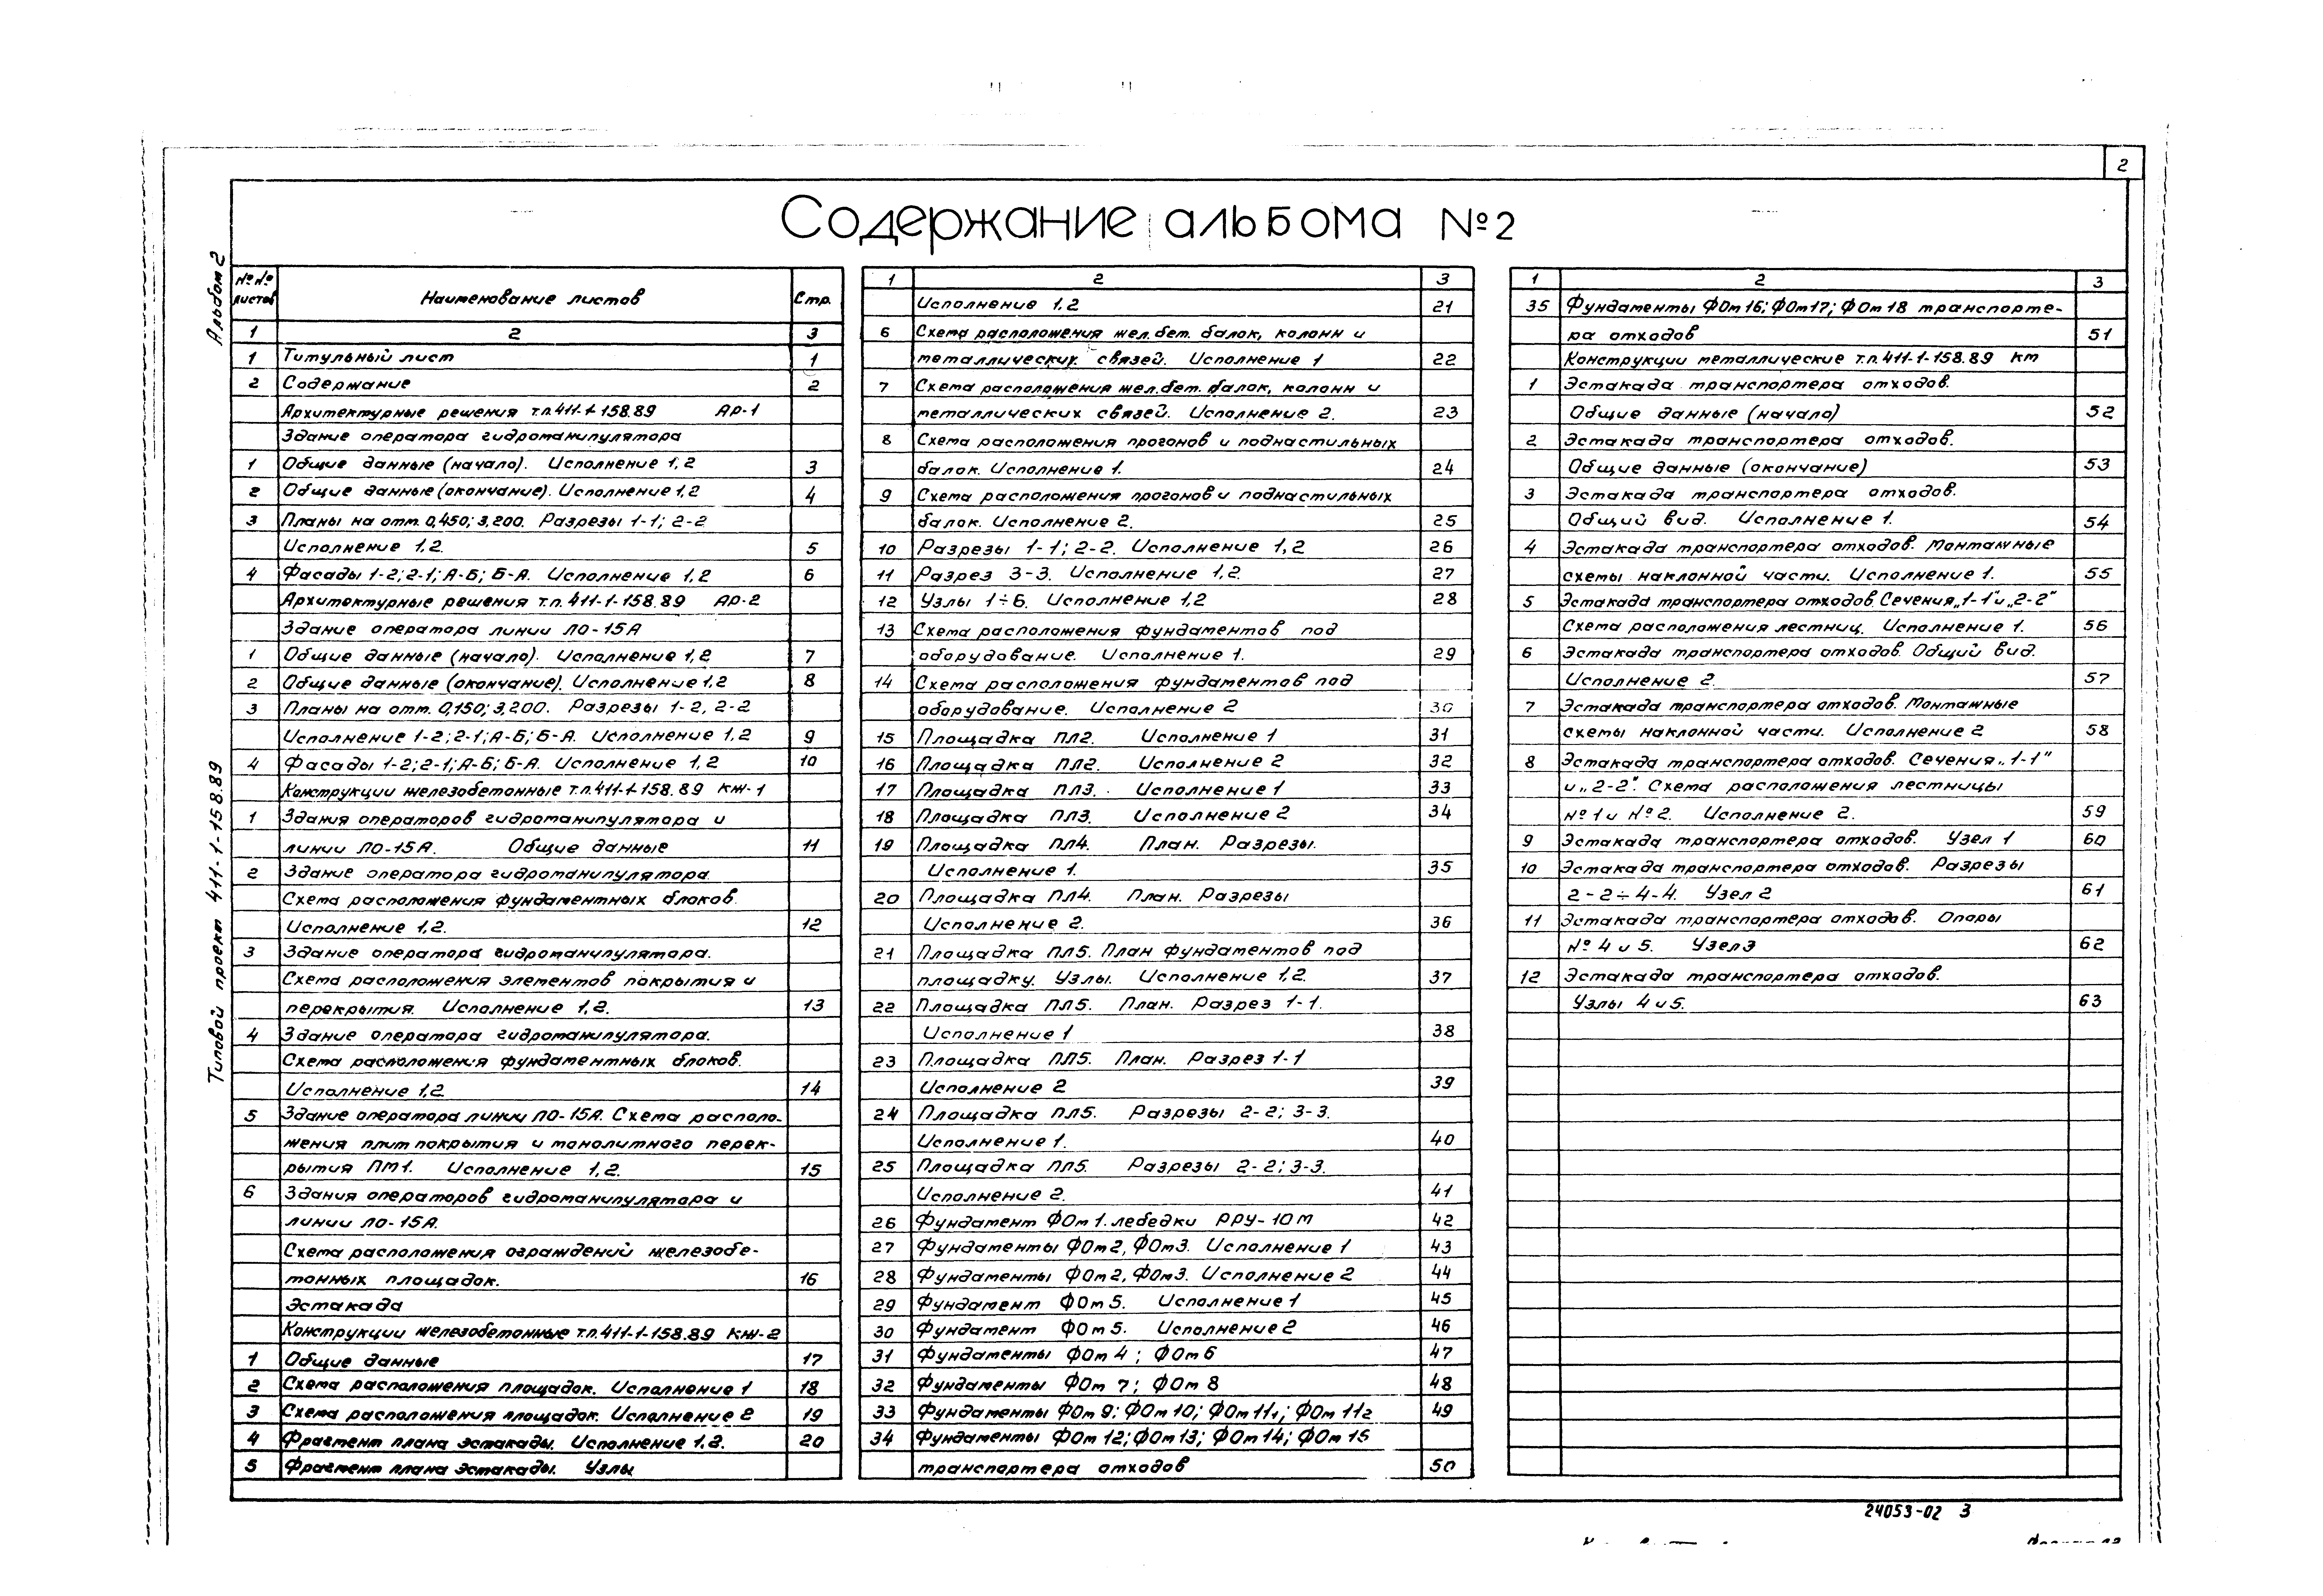 2
Содержание альбома №2
Альбом 2
Типовой проект 411-1-158.89
№№ листов Наименование листов Стр.
1 2 3
1 Титульный лист 1
2 Содержание 2
Архитектурные решения т.п.411-1-158.89 АР-1
Здание оператора гидроманипулятора
1 Общие данные (начало). Исполнение 1,2 3
2 Общие данные (окончание). Исполнение 1,2 4
3 Планы на отм. 0,450; 3,200. Разрезы 1-1; 2-2
Исполнение 1,2. 5
4 Фасады 1-2; 2-1; А-Б; Б-А. Исполнение 1,2 6
Архитектурные решения т.п. 411-1-158.89 АР-2
Здание оператора линии ЛО-15А
1 Общие данные (начало). Исполнение 1,2 7
2 Общие данные (окончание). Исполнение 1,2 8
3 Планы на отм. 0,150; 3,200. Разрезы 1-2, 2-2
Исполнение 1-2; 2-1; А-Б; Б-А. Исполнение 1,2 9
4 Фасады 1-2; 2-1; А-Б; Б-А. Исполнение 1,2 10
Конструкции железобетонные т.п.411-1-158.89 КЖ-1
1 Здания операторов гидроманипулятора и
линии ЛО-15А. Общие данные 11
2 Здание оператора гидроманипулятора.
Схема расположения фундаментных блоков.
Исполнение 1,2. 12
3 Здание оператора гидроманипулятора.
Схема расположения элементов покрытия и
перекрытия. Исполнение 1,2. 13
4 Здание оператора гидроманипулятора.
Схема расположения фундаментных блоков.
Исполнение 1,2. 14
5 Здание оператора линии ЛО-15А. Схема располо-
жения плит покрытия и монолитного перек-
рытия ПМ1. Исполнение 1,2. 15
6 Здания операторов гидроманипулятора и
линии ЛО-15А.
Схема расположения ограждений железобе-
тонных площадок. 16
Эстакада
Конструкции железобетонные т.п.411-1-158.89 КЖ-2
1 Общие данные 17
2 Схема расположения площадок. Исполнение 1 18
3 Схема расположения площадок. Исполнение 2 19
4 Фрагмент плана эстакады. Исполнение 1,2. 20
5 Фрагмент плана эстакады. Узлы
1 2 3
Исполнение 1,2 21
6 Схема расположения жел.бет. балок, колонн и
металлическ. связей. Исполнение 1 22
7 Схема расположения жел.бет. балок, колонн и
металлических связей. Исполнение 2. 23
8 Схема расположения прогонов и поднастильных
балок. Исполнение 1. 24
9 Схема расположения прогонов и поднастильных
балок. Исполнение 2. 25
10 Разрезы 1-1; 2-2. Исполнение 1,2 26
11 Разрез 3-3. Исполнение 1,2. 27
12 Узлы 1÷6. Исполнение 1,2 28
13 Схема расположения фундаментов под
оборудование. Исполнение 1. 29
14 Схема расположения фундаментов под
оборудование. Исполнение 2 30
15 Площадка ПЛ2. Исполнение 1 31
16 Площадка ПЛ2. Исполнение 2 32
17 Площадка ПЛ3. Исполнение 1 33
18 Площадка ПЛ3. Исполнение 2 34
19 Площадка ПЛ4. План. Разрезы.
Исполнение 1. 35
20 Площадка ПЛ4. План. Разрезы
Исполнение 2. 36
21 Площадка ПЛ5. План фундаментов под
площадку. Узлы. Исполнение 1,2. 37
22 Площадка ПЛ5. План. Разрез 1-1.
Исполнение 1 38
23 Площадка ПЛ5. План. Разрез 1-1
Исполнение 2 39
24 Площадка ПЛ5. Разрезы 2-2; 3-3.
Исполнение 1. 40
25 Площадка ПЛ5. Разрезы 2-2; 3-3.
Исполнение 2. 41
26 Фундамент ФОм1. лебедки РРУ-10М 42
27 Фундаменты ФОм2, ФОм3. Исполнение 1 43
28 Фундаменты ФОм2, ФОм3. Исполнение 2 44
29 Фундамент ФОм5. Исполнение 1 45
30 Фундамент ФОм5. Исполнение 2 46
31 Фундаменты ФОм4; ФОм6 47
32 Фундаменты ФОм7; ФОм8 48
33 Фундаменты ФОм9; ФОм10; ФОм11₁; ФОм11₂ 49
34 Фундаменты ФОм12; ФОм13; ФОм14; ФОм15
транспортера отходов 50
1 2 3
35 Фундаменты ФОм16; ФОм17; ФОм18 транспорте-
ра отходов 51
Конструкции металлические т.п.411-1-158.89 КМ
1 Эстакада транспортера отходов.
Общие данные (начало) 52
2 Эстакада транспортера отходов.
Общие данные (окончание) 53
3 Эстакада транспортера отходов.
Общий вид. Исполнение 1. 54
4 Эстакада транспортера отходов. Монтажные
схемы наклонной части. Исполнение 1. 55
5 Эстакада транспортера отходов. Сечения „1-1" и „2-2"
Схема расположения лестниц. Исполнение 1. 56
6 Эстакада транспортера отходов. Общий вид.
Исполнение 2. 57
7 Эстакада транспортера отходов. Монтажные
схемы наклонной части. Исполнение 2 58
8 Эстакада транспортера отходов. Сечения „1-1"
и „2-2". Схема расположения лестницы
№1 и №2. Исполнение 2. 59
9 Эстакада транспортера отходов. Узел 1 60
10 Эстакада транспортера отходов. Разрезы
2-2÷4-4. Узел 2 61
11 Эстакада транспортера отходов. Опоры
№ 4 и 5. Узел 3 62
12 Эстакада транспортера отходов.
Узлы 4 и 5. 63
24053-02 3